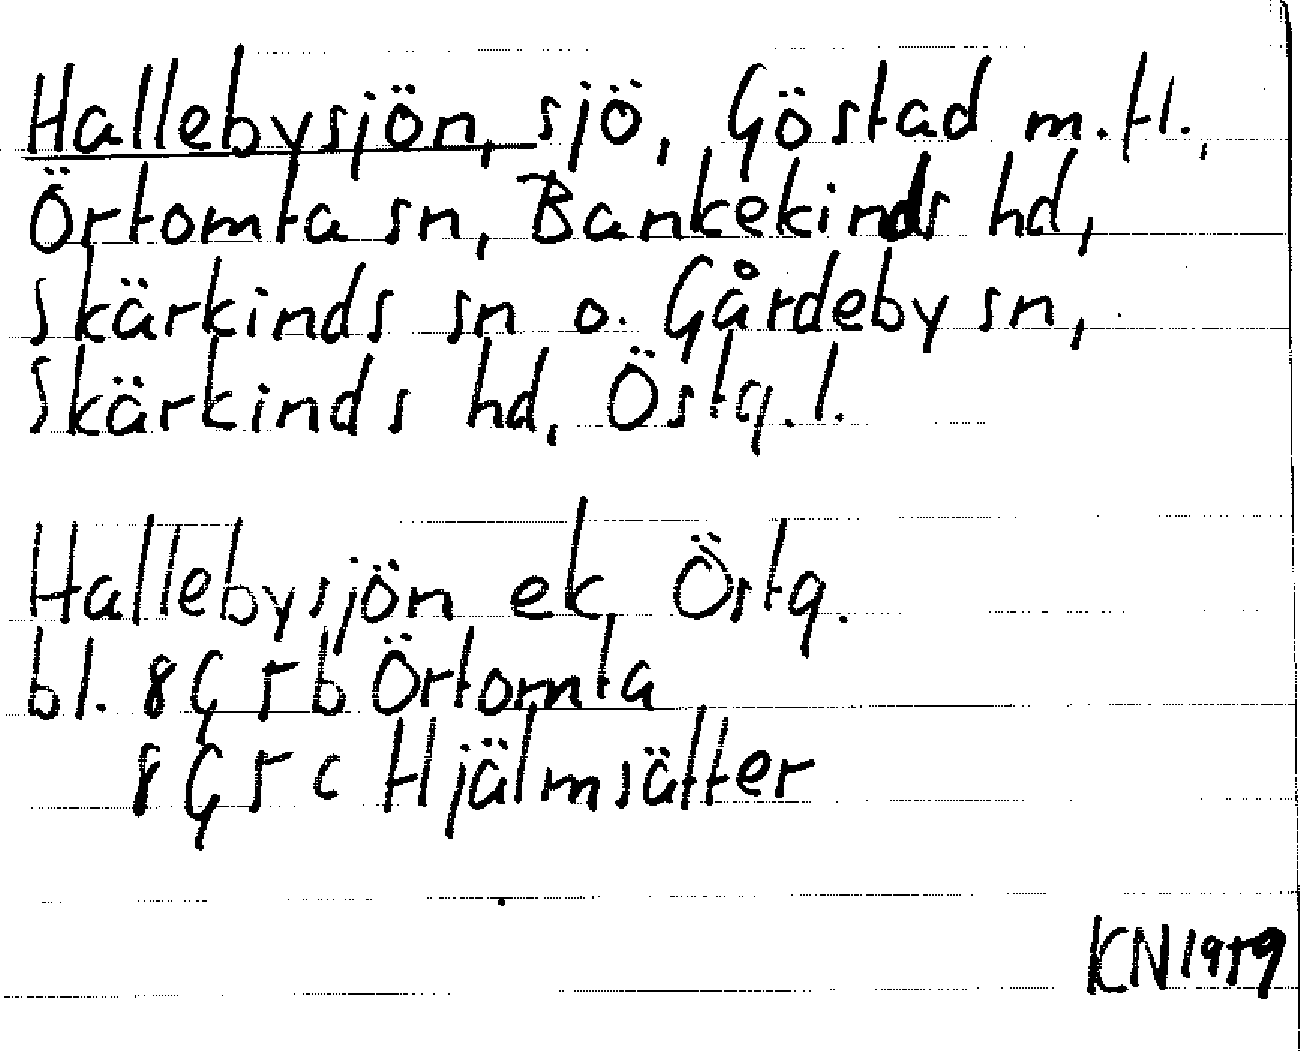 Hallebysjön, sjö, Göstad m.fl.,
Örtomta sn, Bankekinds hd,
Skärkinds sn o. Gårdeby sn,
Skärkinds hd, Östg.l.
Hallebysjön ek Östg.
bl. 8G5b Örtomta
8G5c Hjälmsätter
KN1959